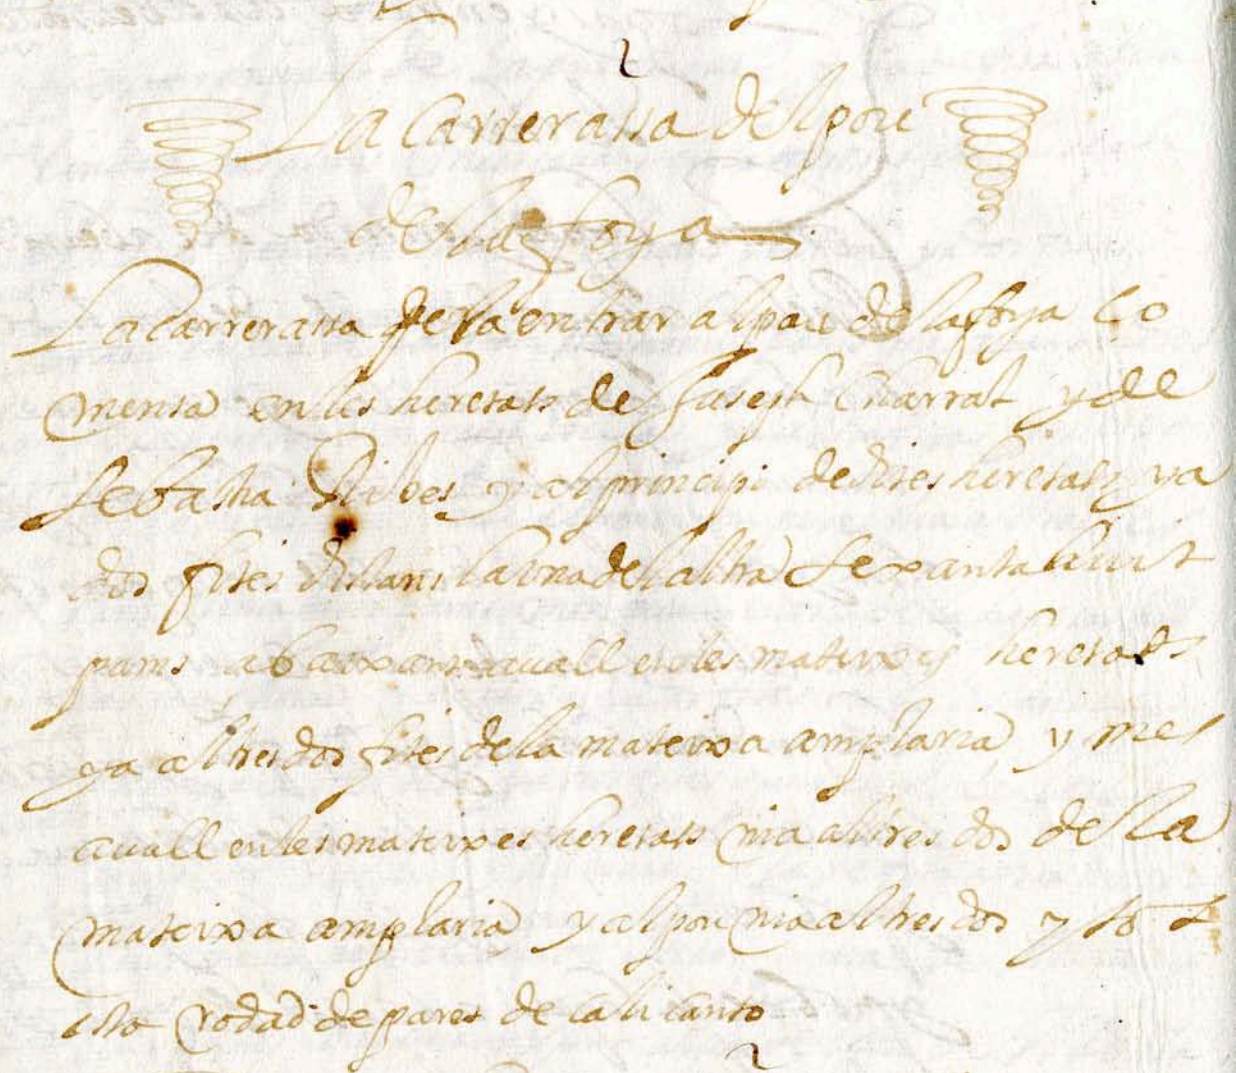 La Carrerassa del pou
de la foya
La Carrerassa pera entrar al pou de la foya Co
mensa en les heretats de Juseph Charrat y de
Sebastia Ribes y al principi de dites heretats ya
dos fites distans la una de laltra Sexanta huit
pams abaixant avall en les mateixes heretats
ya altres dos fites de la mateixa amplaria y mes
avall en les mateixes heretats nia altres dos de la
mateixa amplaria y al pou nia altres dos y tot
esta rodad de pares de calicanto